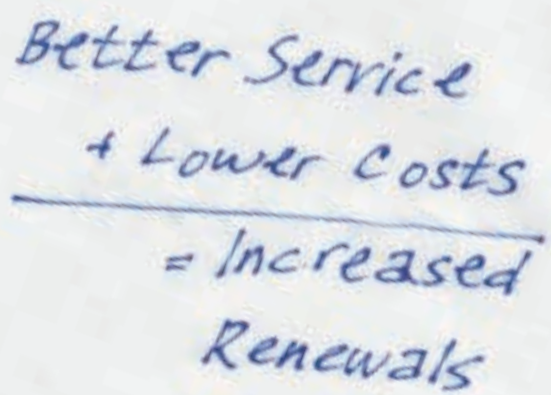 Better Service
+ Lower Costs
= Increased
Renewals